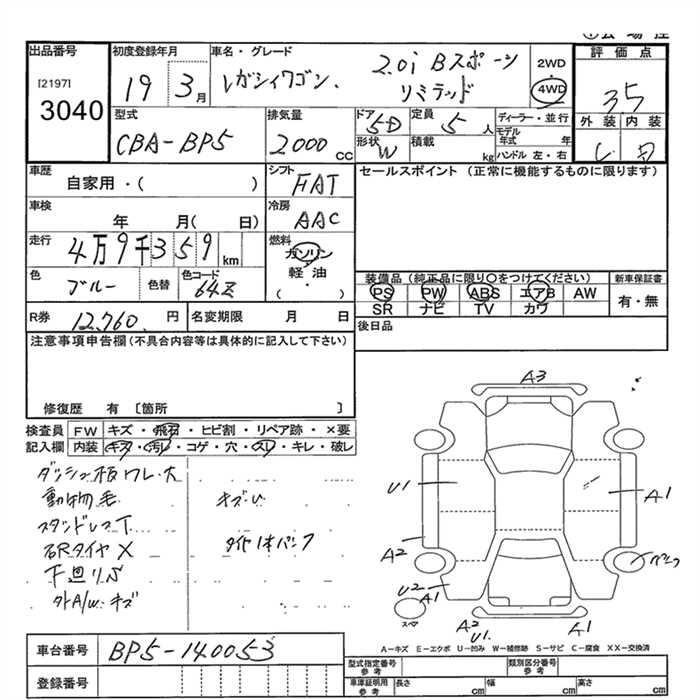 出品番号 初度登録年月 車名・グレード 評価点
[2197] 3040
19 3月
レガシィワゴン. 2.0i Bスポーツ リミテッド
2WD・4WD
3.5
外装 内装
型式 排気量 ドア 形状 定員 積載 ディーラー・並行
CBA-BP5 2000cc 5D W 5人 kg
モデル年式 年
ハンドル 左・右
車歴 シフト セールスポイント(正常に機能するものに限ります)
自家用・( ) FAT
車検 冷房
年 月( 日) AAC
走行 燃料
4万9千359km ガソリン・軽油・( )
色 色替 色コード
ブルー 64Z
装備品(純正品に限り○をつけてください) 新車保証書
PS PW ABS エアB AW 有・無
SR ナビ TV カワ
R券 12,760.円 名変期限 月 日
後日品
注意事項申告欄(不具合内容等は具体的に記入して下さい)
修復歴 有 [箇所 ]
検査員 FW キズ・飛石・ヒビ割・リペア跡・×要
記入欄 内装 キズ・汚レ・コゲ・穴・スレ・キレ・破レ
ダッシュ板ワレ・大
動物毛 キズ・U
スタッドレスT
石Rタイヤ X タイヤ1本パンク
下廻りS
外A/W・キズ
A3
U1 A1
A2 パンク
U2 A1
スペア
A2 U1. A1
A-キズ E-エクボ U-凹み W-補修跡 S-サビ C-腐食 XX-交換済
車台番号 BP5-140053
登録番号
型式指定番号 参考 類別区分番号 参考
車庫証明用 参考 長さ cm 幅 cm 高さ cm